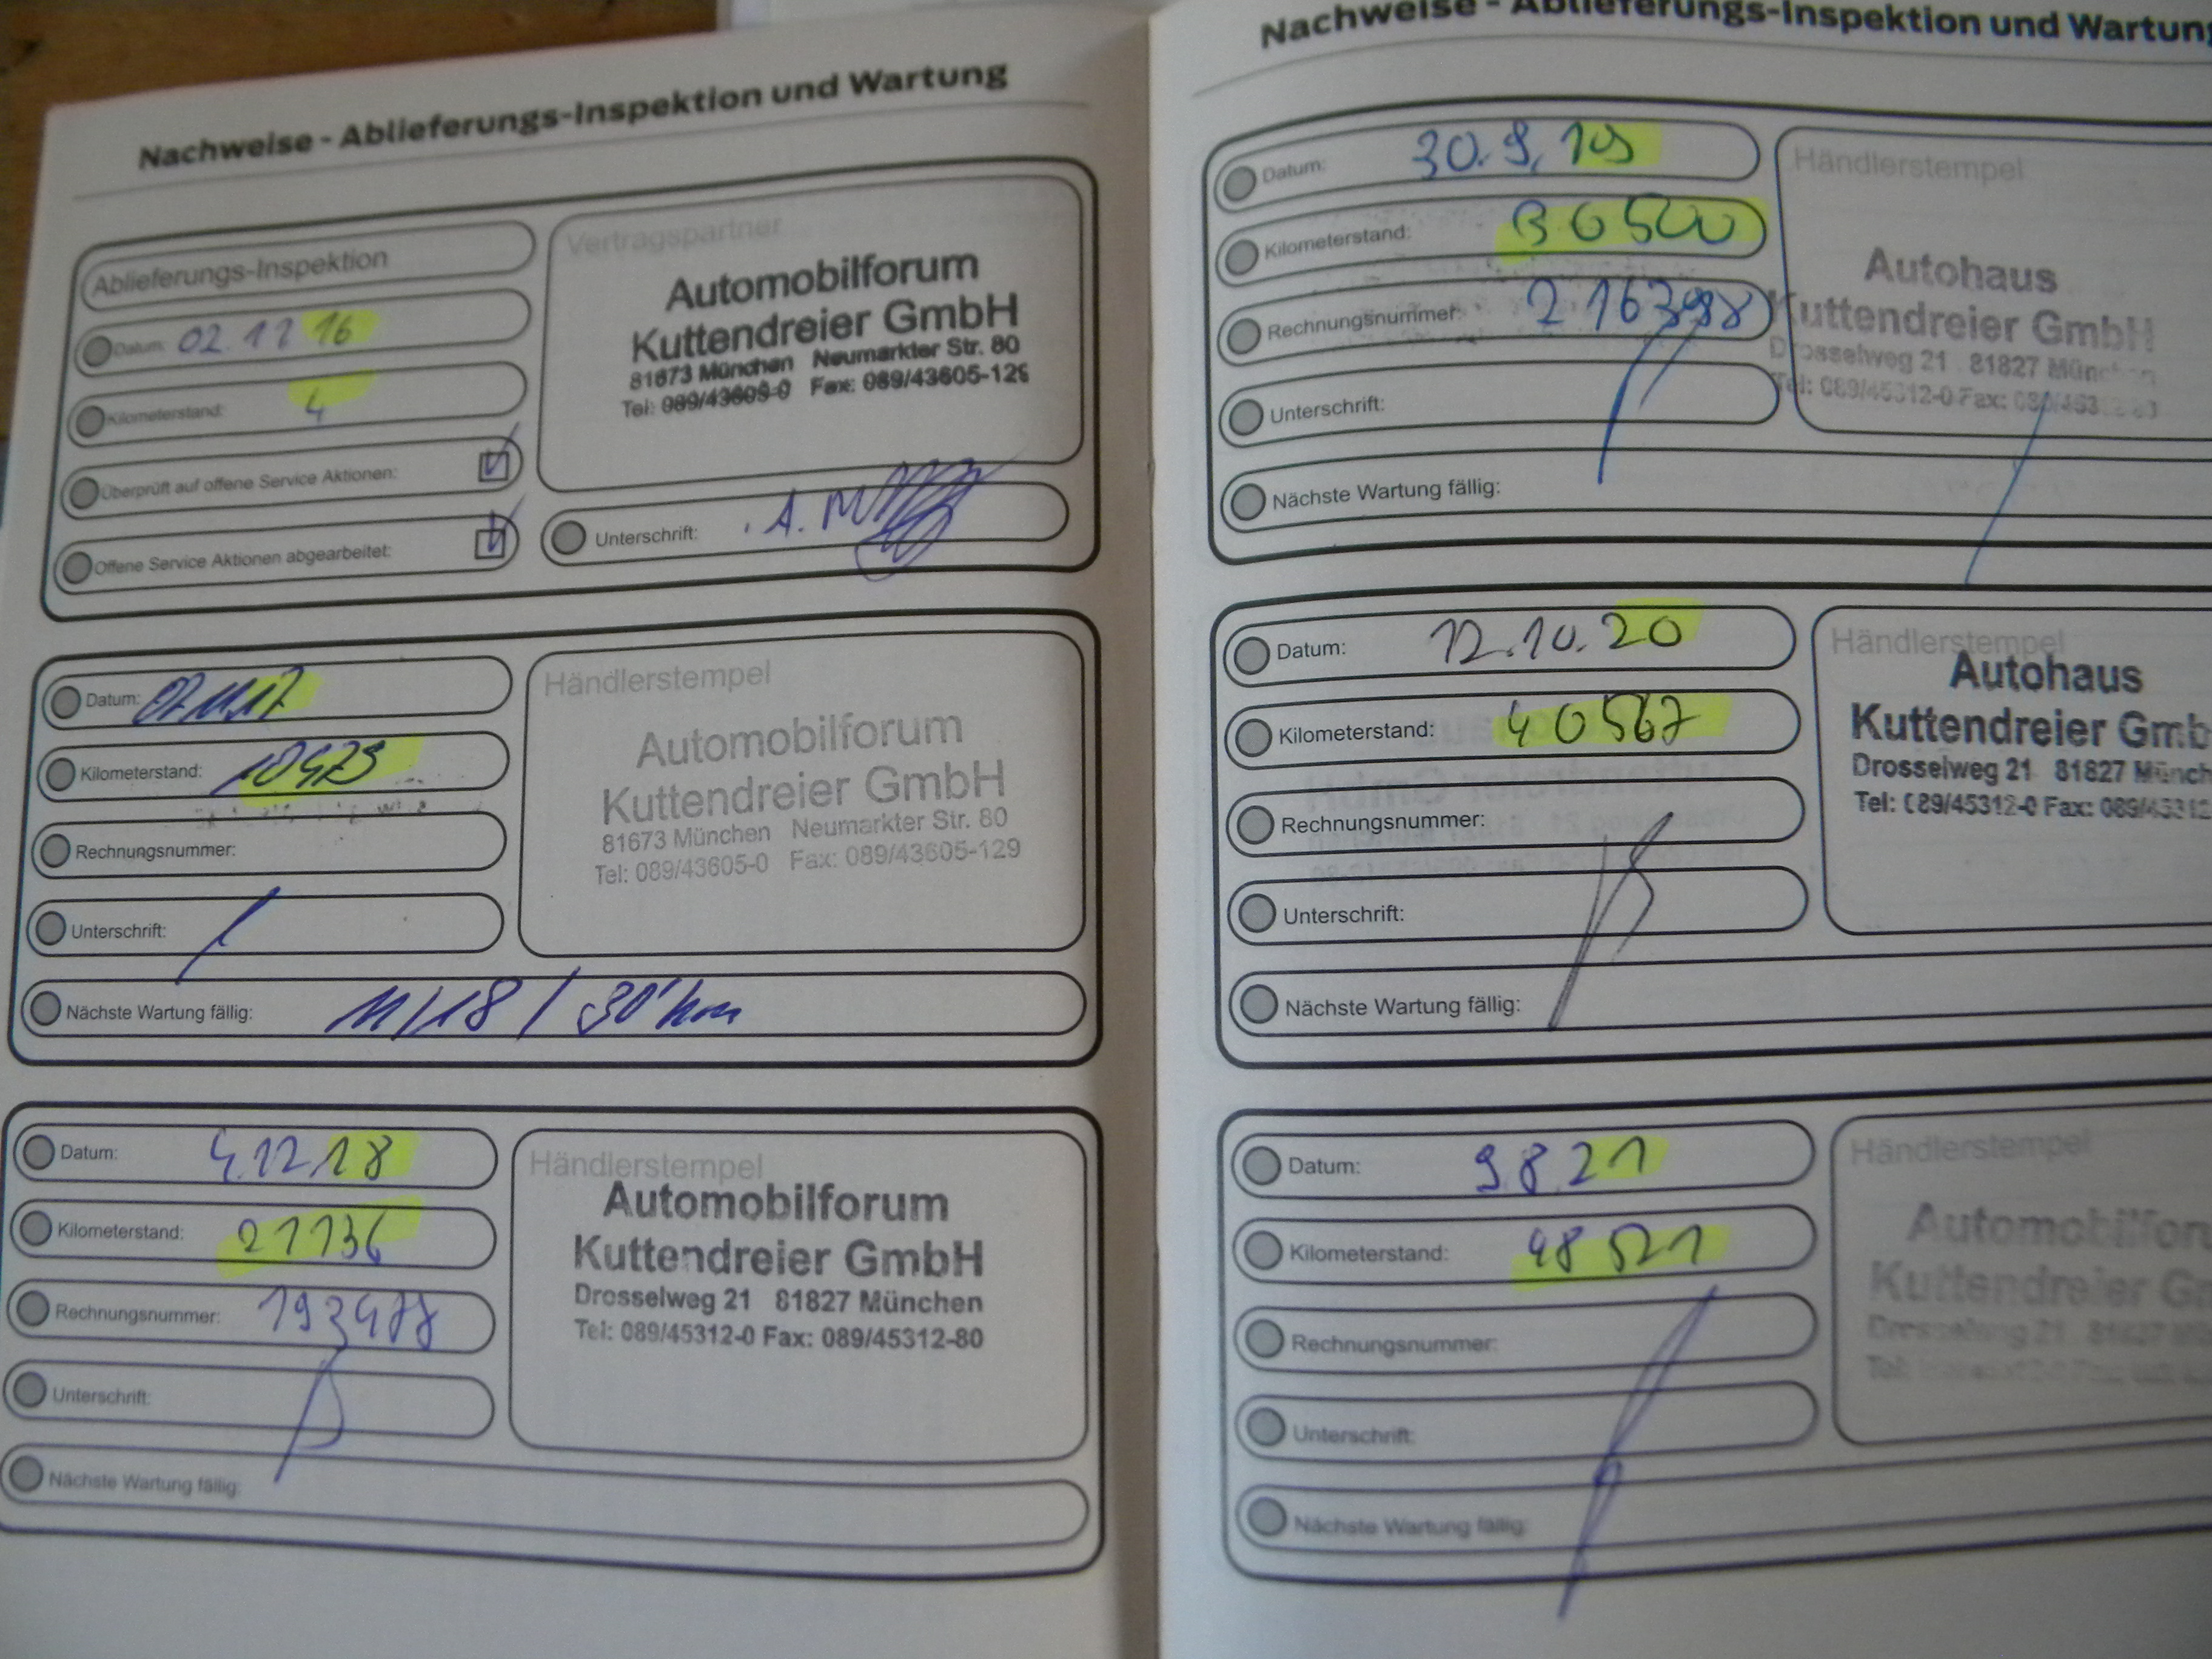 Nachweise - Ablieferungs-Inspektion und Wartung
Ablieferungs-Inspektion
Datum: 02.12 16
Kilometerstand: 4
Überprüft auf offene Service Aktionen:
Offene Service Aktionen abgearbeitet:
Vertragspartner
Automobilforum
Kuttendreier GmbH
81673 München Neumarkter Str. 80
Tel: 089/43605-0 Fax: 089/43605-129
Unterschrift: A.
Datum:
Kilometerstand:
Rechnungsnummer:
Unterschrift:
Nächste Wartung fällig: 11/18 / 30'km
Händlerstempel
Automobilforum
Kuttendreier GmbH
81673 München Neumarkter Str. 80
Tel: 089/43605-0 Fax: 089/43605-129
Datum: 4.12.18
Kilometerstand: 21136
Rechnungsnummer:
Unterschrift:
Nächste Wartung fällig:
Händlerstempel
Automobilforum
Kuttendreier GmbH
Drosselweg 21 81827 München
Tel: 089/45312-0 Fax: 089/45312-80
Nachweise - Ablieferungs-Inspektion und Wartung
Datum: 30.9.19
Kilometerstand: 30500
Rechnungsnummer: 216398
Unterschrift:
Nächste Wartung fällig:
Händlerstempel
Autohaus
Kuttendreier GmbH
Drosselweg 21 81827 München
Tel: 089/45312-0 Fax:
Datum: 12.10.20
Kilometerstand: 40567
Rechnungsnummer:
Unterschrift:
Nächste Wartung fällig:
Händlerstempel
Autohaus
Kuttendreier Gmb
Drosselweg 21 81827 Münch
Tel: 089/45312-0 Fax: 089/45312
Datum: 9.8.21
Kilometerstand: 48521
Rechnungsnummer:
Unterschrift:
Nächste Wartung fällig:
Händlerstempel
Automobilforu
Kuttendreier G